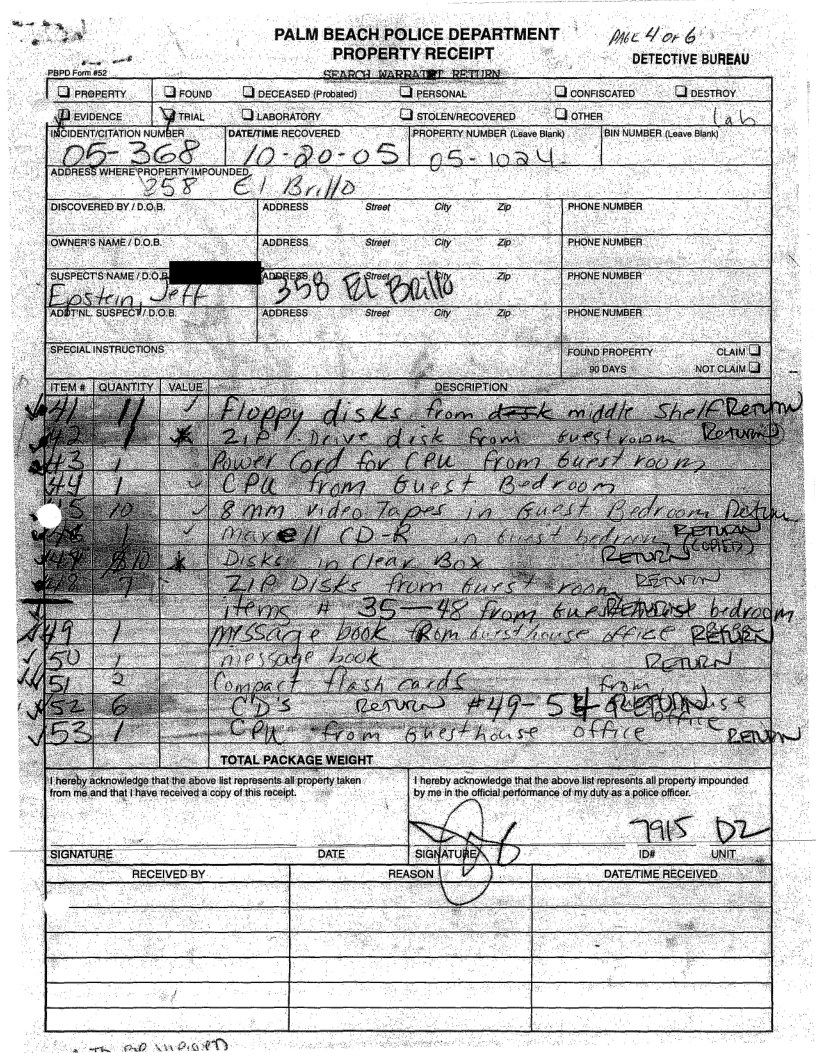 PALM BEACH POLICE DEPARTMENT
PAGE 4 OF 6
PROPERTY RECEIPT
DETECTIVE BUREAU
PBPD Form #52
SEARCH WARRANT RETURN
PROPERTY FOUND DECEASED (Probated) PERSONAL CONFISCATED DESTROY
EVIDENCE TRIAL LABORATORY STOLEN/RECOVERED OTHER lab
INCIDENT/CITATION NUMBER DATE/TIME RECOVERED PROPERTY NUMBER (Leave Blank) BIN NUMBER (Leave Blank)
05-368 10-20-05 05-1024
ADDRESS WHERE PROPERTY IMPOUNDED
358 El Brillo
DISCOVERED BY / D.O.B. ADDRESS Street City Zip PHONE NUMBER
OWNER'S NAME / D.O.B. ADDRESS Street City Zip PHONE NUMBER
SUSPECT'S NAME / D.O.B. ADDRESS Street City Zip PHONE NUMBER
Epstein, Jeff 358 El Brillo
ADDT'NL. SUSPECT / D.O.B. ADDRESS Street City Zip PHONE NUMBER
SPECIAL INSTRUCTIONS FOUND PROPERTY CLAIM
90 DAYS NOT CLAIM
ITEM # QUANTITY VALUE DESCRIPTION
41 11 Floppy disks from desk middle Shelf Return
42 1 ZIP Drive disk from Guest room Return
43 1 Power Cord for CPU from Guest room
44 1 CPU from Guest Bedroom
45 10 8 mm video Tapes in Guest Bedroom Return
1 Maxell CD-R in Guest bedroom RETURN
10 Disks in Clear Box RETURN (COPIED)
7 ZIP Disks from Guest room RETURN
items # 35-48 from Guest bedroom
49 1 message book from Guesthouse office RETURN
50 1 message book RETURN
51 2 Compact flash cards from
52 6 CD's RETURN #49-54 office
53 1 CPU from Guesthouse office RETURN
TOTAL PACKAGE WEIGHT
I hereby acknowledge that the above list represents all property taken
from me and that I have received a copy of this receipt.
I hereby acknowledge that the above list represents all property impounded
by me in the official performance of my duty as a police officer.
7915 D2
SIGNATURE DATE SIGNATURE ID# UNIT
RECEIVED BY REASON DATE/TIME RECEIVED